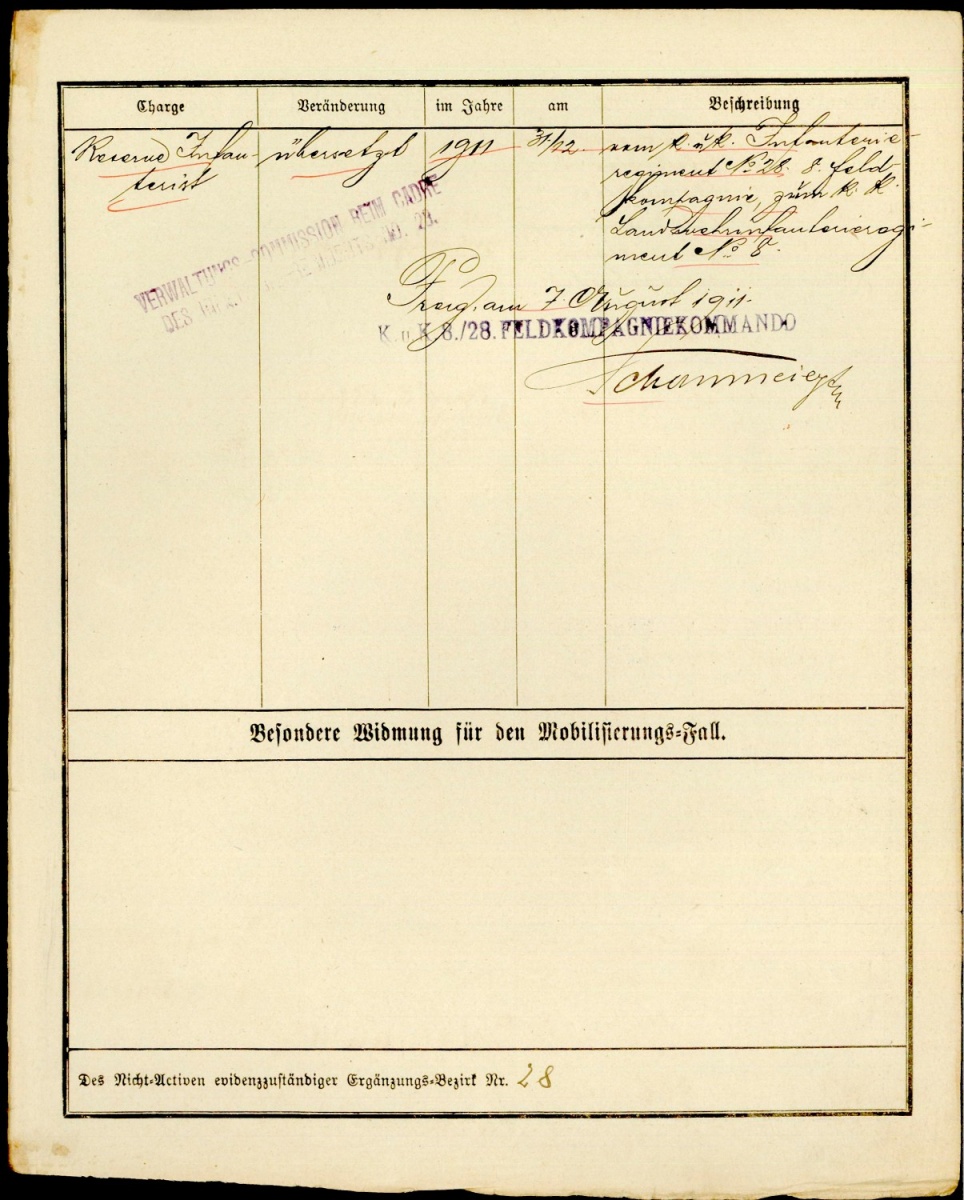 Charge Veränderung im Jahre am Beschreibung
Reserve Infan- übersetzt 1911 31/12. vom k. u. k. Infanterie-
terist regiment No 28. 8. Feld-
kompagnie, zum k. k.
Landwehrinfanterieregi-
ment No 8.
VERWALTUNGS-COMMISSION BEIM CADRE
DES No. 28.
Prag, am 7. August 1911.
K. u. K. 8./28. FELDKOMPAGNIEKOMMANDO
Besondere Widmung für den Mobilisierungs-Fall.
Des Nicht-Activen evidenzzuständiger Ergänzungs-Bezirk Nr. 28